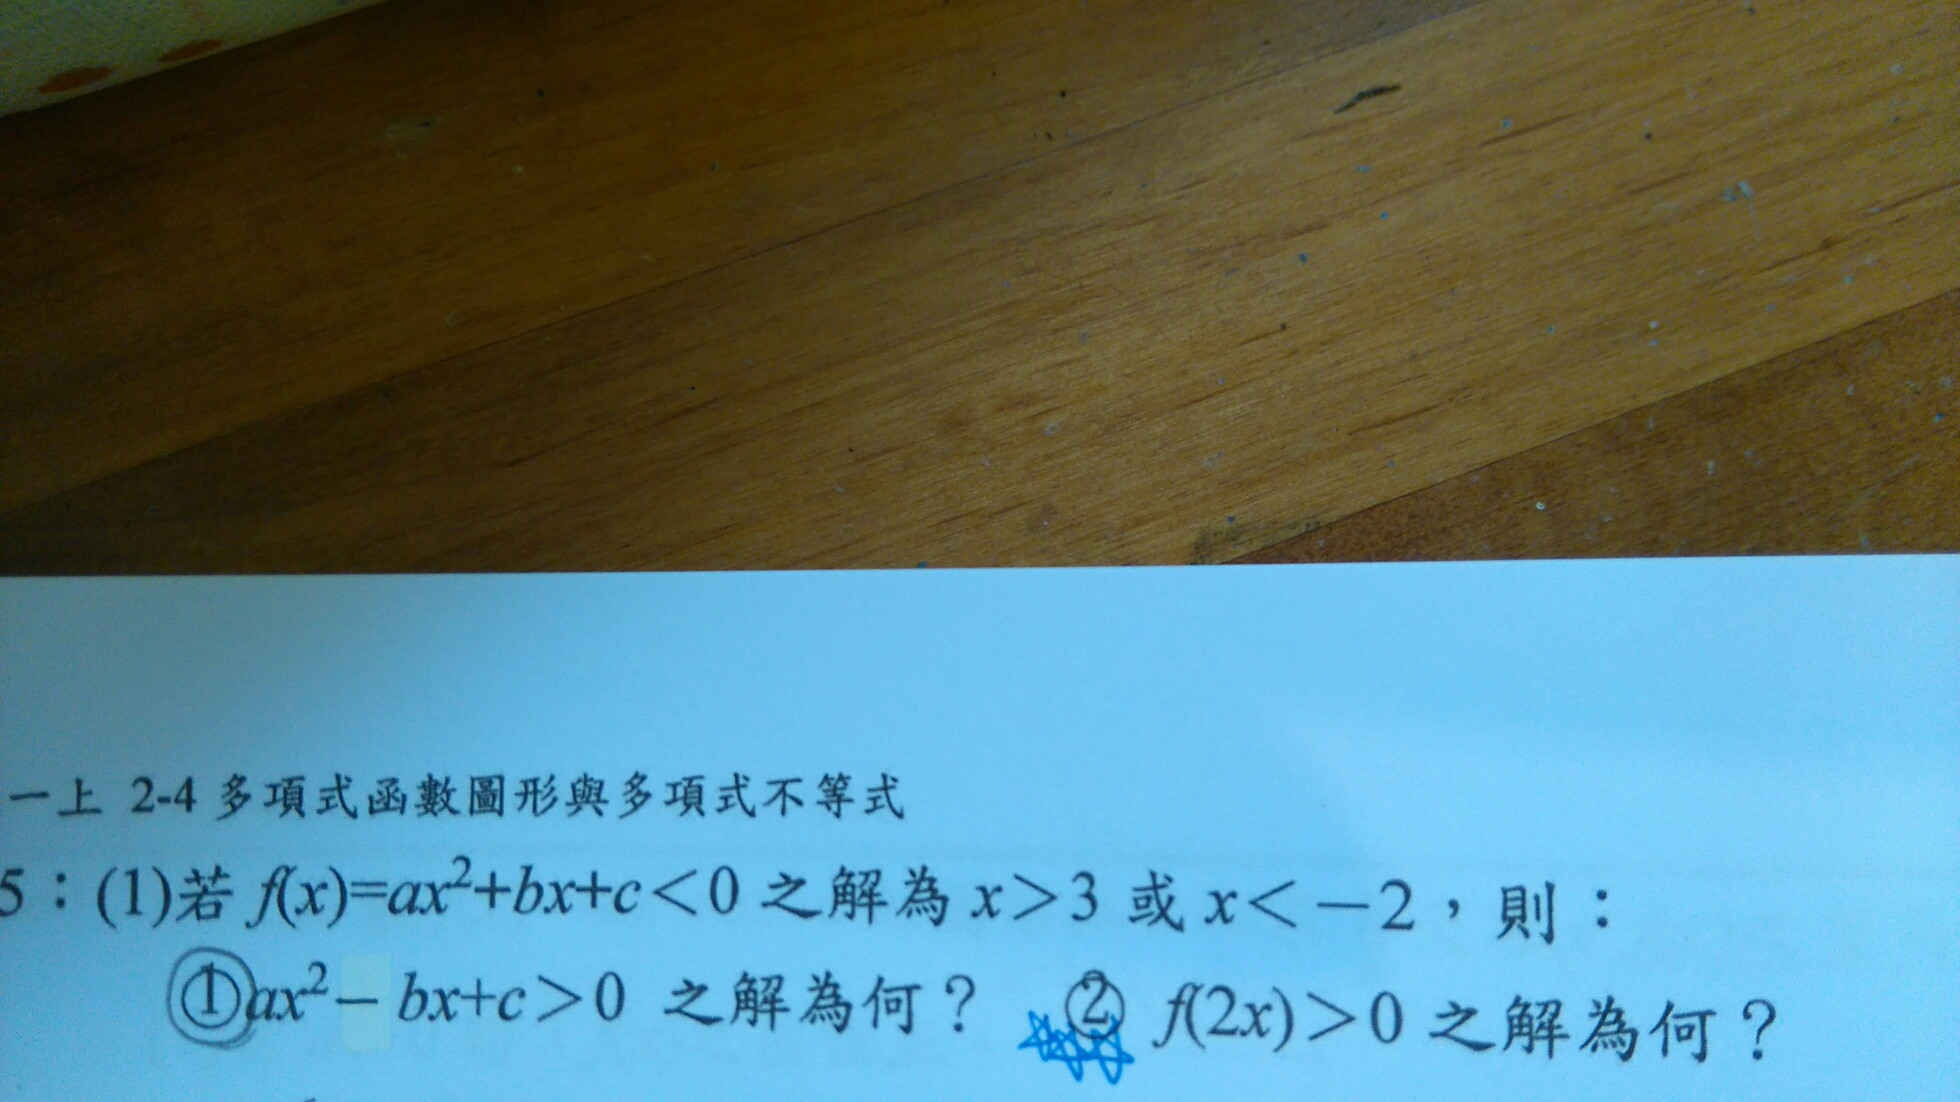 一上 2-4 多項式函數圖形與多項式不等式
5：(1)若 f(x)=ax²+bx+c<0 之解為 x>3 或 x< −2，則：
①ax²− bx+c>0 之解為何？ ② f(2x)>0 之解為何？